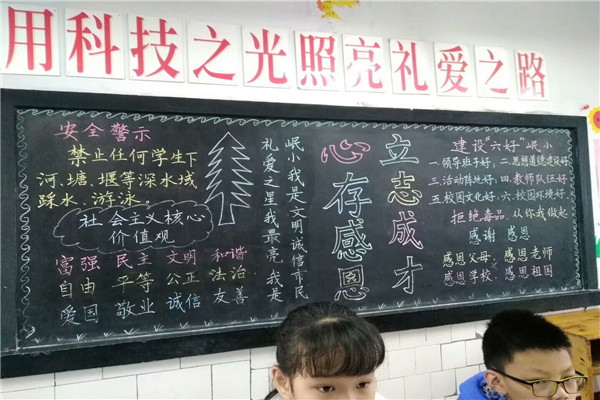 用科技之光照亮礼爱之路
安全警示
禁止任何学生下
河、塘、堰等深水域
踩水、游泳。
社会主义核心
价值观
富强 民主 文明 和谐
自由 平等 公正 法治
爱国 敬业 诚信 友善
礼爱之星我最亮我是
岷小我是文明诚信市民
心存感恩
立志成才
建设“六好”岷小
一.领导班子好,二.思想道德建设好
三.活动阵地好,四.教师队伍好
五.校园文化好,六.校园环境好
拒绝毒品,从你我做起
感谢 感恩
感恩父母;感恩老师
感恩学校;感恩祖国